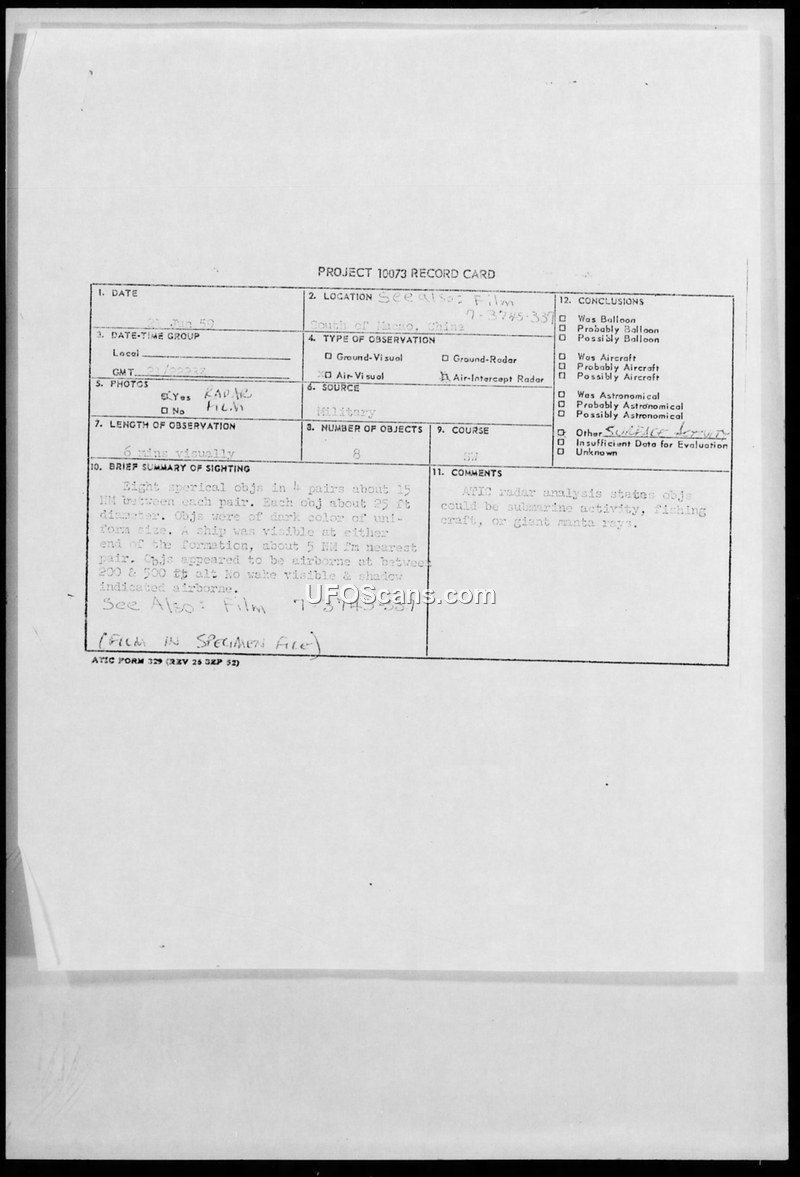 PROJECT 10073 RECORD CARD
1. DATE
Jun 59
2. LOCATION See also: Film
7-3745-337
South of Macao, China
3. DATE-TIME GROUP
Local
GMT
4. TYPE OF OBSERVATION
Ground-Visual
Ground-Radar
Air-Visual
Air-Intercept Radar
5. PHOTOS
Yes RADAR
No FILM
6. SOURCE
Military
7. LENGTH OF OBSERVATION
6 mins visually
8. NUMBER OF OBJECTS
8
9. COURSE
10. BRIEF SUMMARY OF SIGHTING
Eight sperical objs in 4 pairs about 15
NM between each pair. Each obj about 25 ft
diameter. Objs were of dark color of uni-
form size. A ship was visible at either
end of the formation, about 5 NM fm nearest
pair. Objs appeared to be airborne at between
200 & 500 ft alt No wake visible & shadow
indicated airborne.
See Also: Film 7-3745-337
(FILM IN SPECIMEN FILE)
11. COMMENTS
ATIC radar analysis states objs
could be submarine activity, fishing
craft, or giant manta rays.
12. CONCLUSIONS
Was Balloon
Probably Balloon
Possibly Balloon
Was Aircraft
Probably Aircraft
Possibly Aircraft
Was Astronomical
Probably Astronomical
Possibly Astronomical
Other SURFACE
Insufficient Data for Evaluation
Unknown
ATIC FORM 329 (REV 26 SEP 52)
UFOScans.com